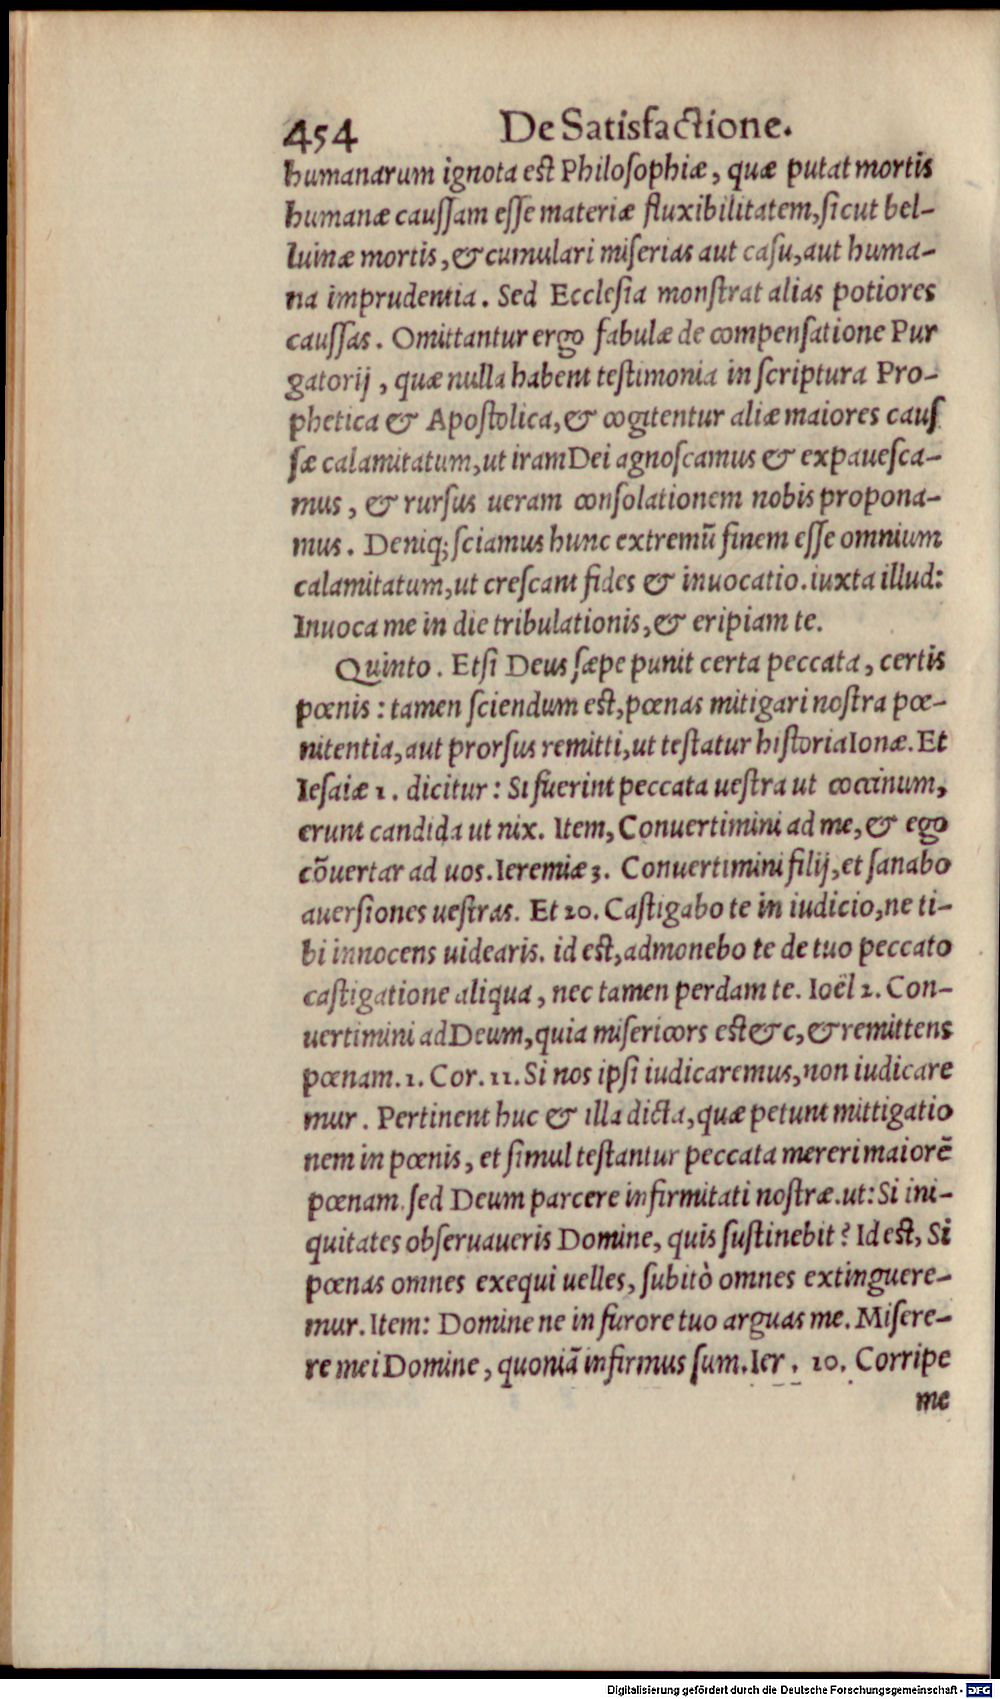 454 De Satisfactione.
humanarum ignota est Philosophiæ, quæ putat mortis
humanæ caussam esse materiæ fluxibilitatem, sicut bel-
luinæ mortis, & cumulari miserias aut casu, aut huma-
na imprudentia. Sed Ecclesia monstrat alias potiores
caussas. Omittantur ergo fabulæ de compensatione Pur
gatorij, quæ nulla habent testimonia in scriptura Pro-
phetica & Apostolica, & cogitentur aliæ maiores caus
sæ calamitatum, ut iram Dei agnoscamus & expauesca-
mus, & rursus ueram consolationem nobis propona-
mus. Deniq; sciamus hunc extremũ finem esse omnium
calamitatum, ut crescant fides & inuocatio. iuxta illud:
Inuoca me in die tribulationis, & eripiam te.
Quinto. Etsi Deus sæpe punit certa peccata, certis
pœnis: tamen sciendum est, pœnas mitigari nostra pœ-
nitentia, aut prorsus remitti, ut testatur historia Ionæ. Et
Iesaiæ 1. dicitur: Si fuerint peccata uestra ut coccinum,
erunt candida ut nix. Item, Conuertimini ad me, & ego
cõuertar ad uos. Ieremiæ 3. Conuertimini filij, et sanabo
auersiones uestras. Et 20. Castigabo te in iudicio, ne ti-
bi innocens uidearis. id est, admonebo te de tuo peccato
castigatione aliqua, nec tamen perdam te. Ioël 2. Con-
uertimini ad Deum, quia misericors est &c, & remittens
pœnam. 1. Cor. 11. Si nos ipsi iudicaremus, non iudicare
mur. Pertinent huc & illa dicta, quæ petunt mittigatio
nem in pœnis, et simul testantur peccata mereri maiorẽ
pœnam. sed Deum parcere infirmitati nostræ. ut: Si ini-
quitates obseruaueris Domine, quis sustinebit? Id est, Si
pœnas omnes exequi uelles, subitò omnes extinguere-
mur. Item: Domine ne in furore tuo arguas me. Misere-
re mei Domine, quoniã infirmus sum. Ier. 10. Corripe
me
Digitalisierung gefördert durch die Deutsche Forschungsgemeinschaft - DFG